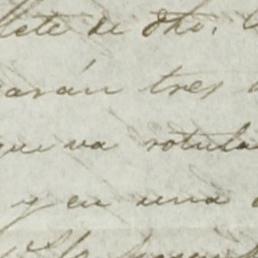 lete de dho.
arán tres
que va rotula
y en una